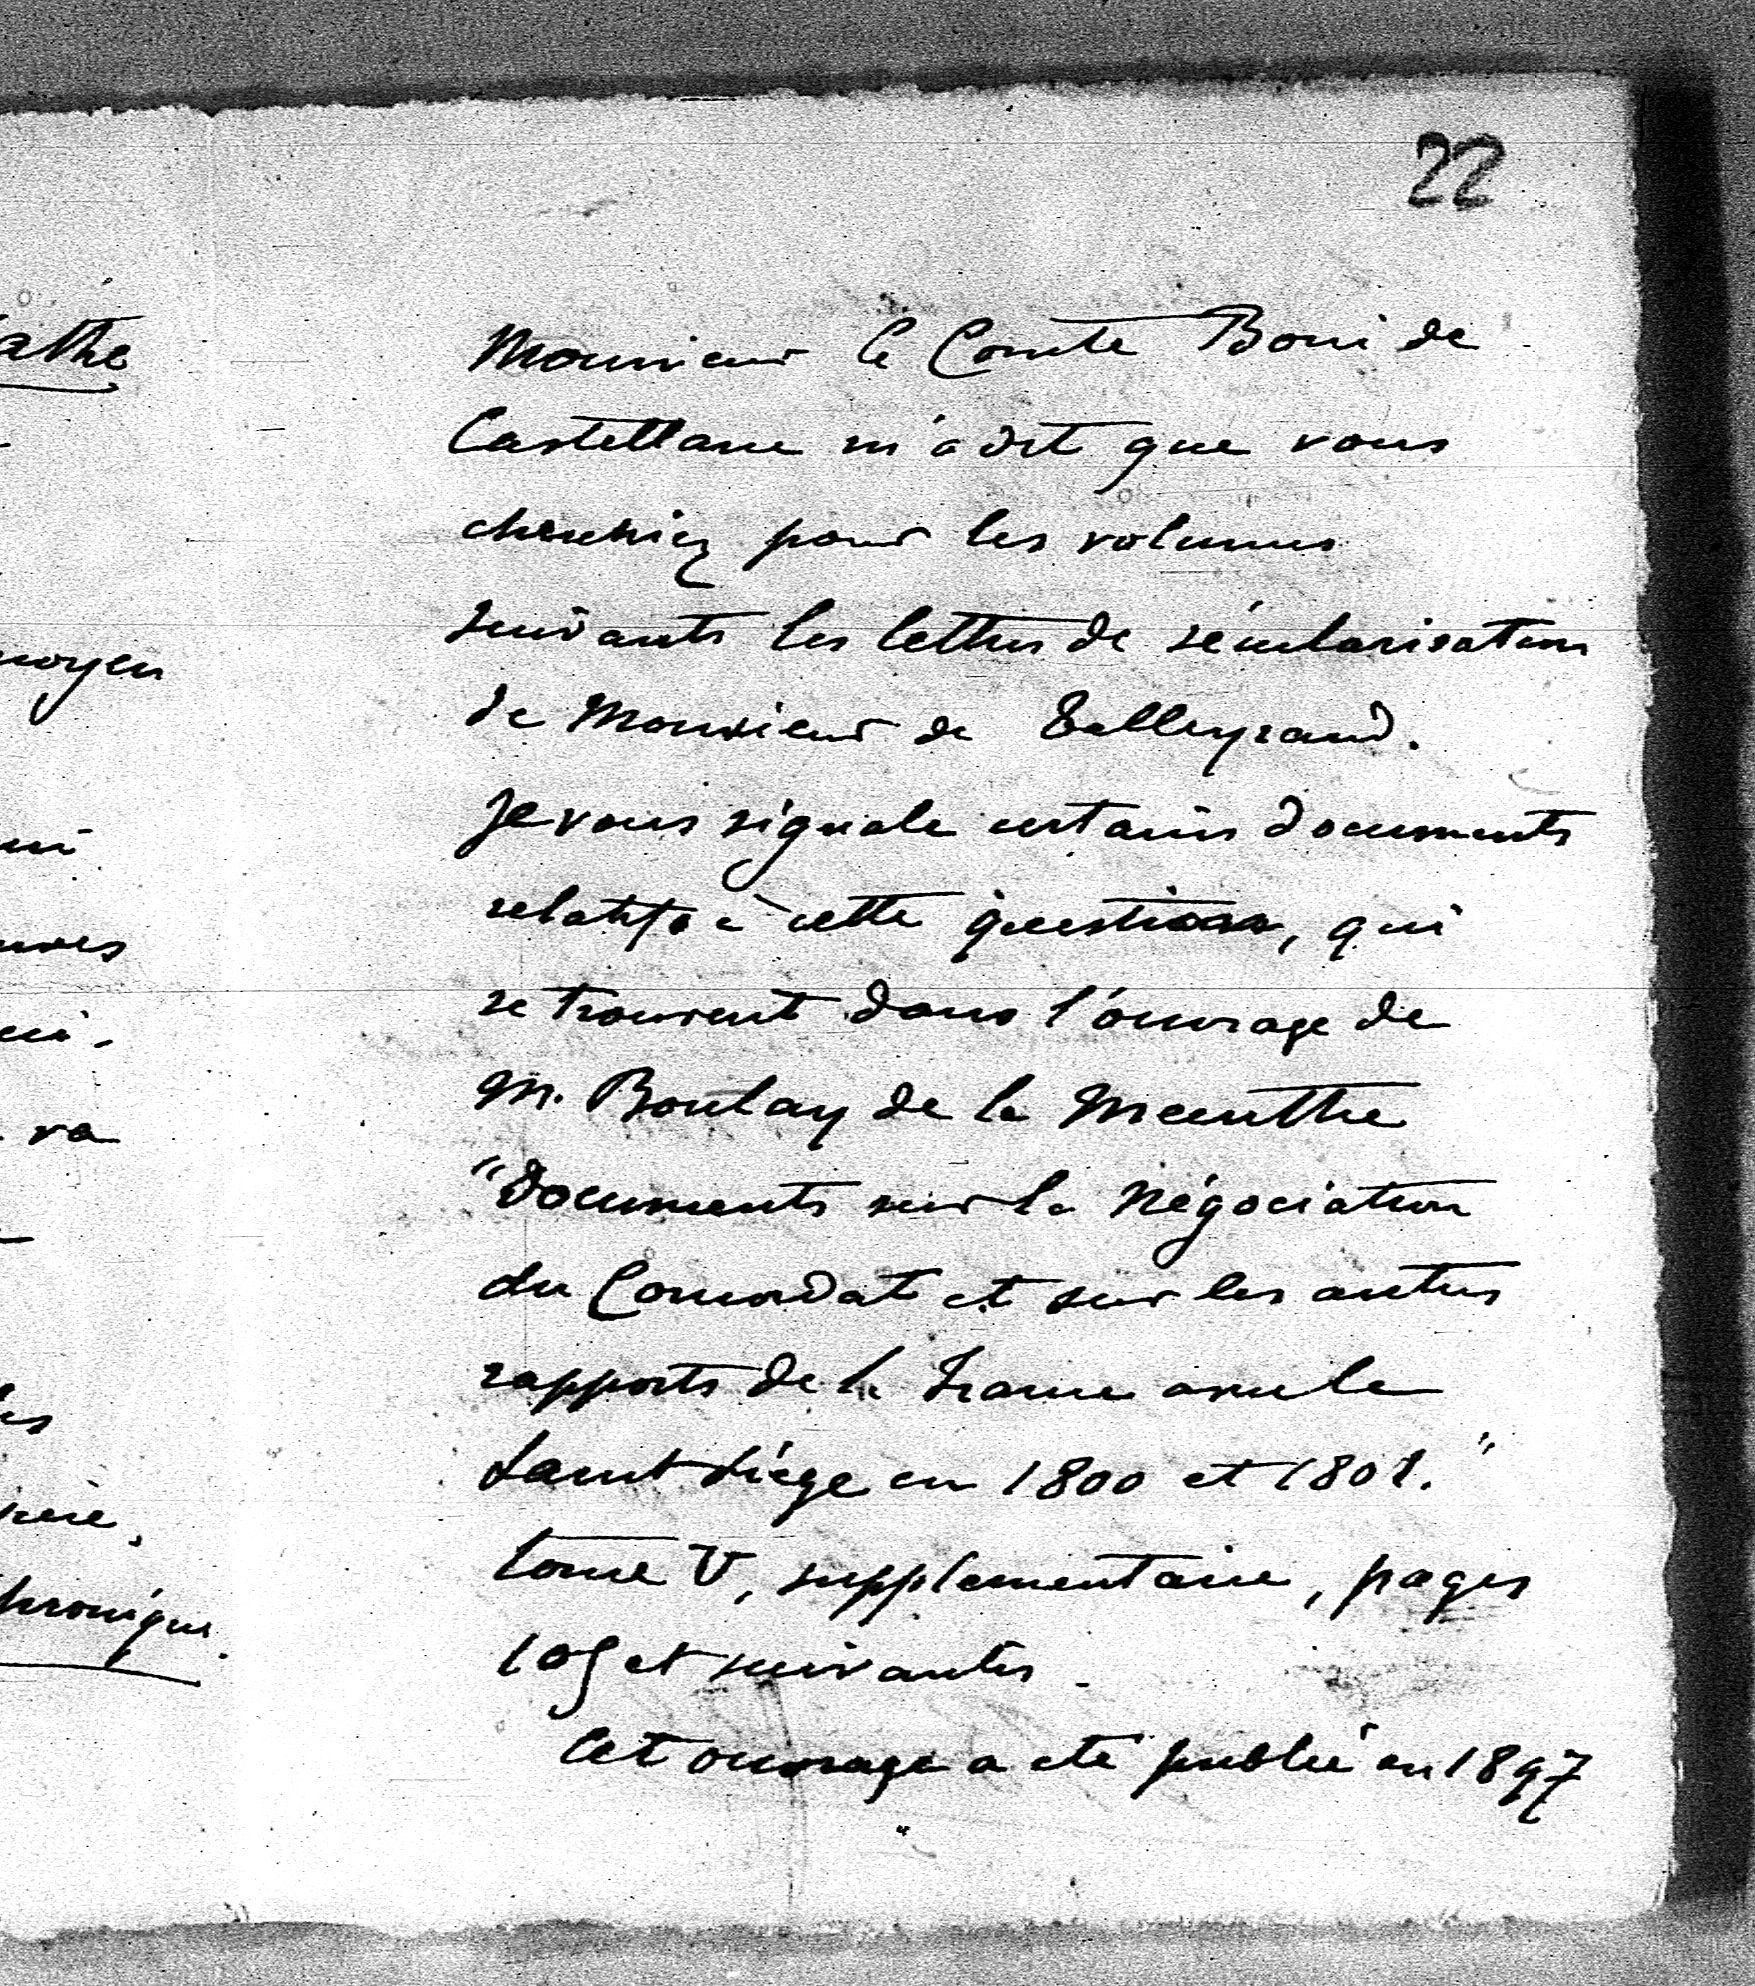 22
athe
Monsieur le Comte Boni de
Castellane m'a dit que vous
cherchiez pour les volumes
suivants les lettres de sécularisation
moyen
de Monsieur de Talleyrand.
Je vous signale certains documents
relatifs à cette question, qui
se trouvent dans l'ouvrage de
M. Boulay de la Meurthe
va
"Documents sur la Négociation
du Concordat et sur les autres
rapports de la France avec le
les
Saint Siège en 1800 et 1801."
tome V, supplémentaire, pages
et suivantes.
Cet ouvrage a été publié en 1897